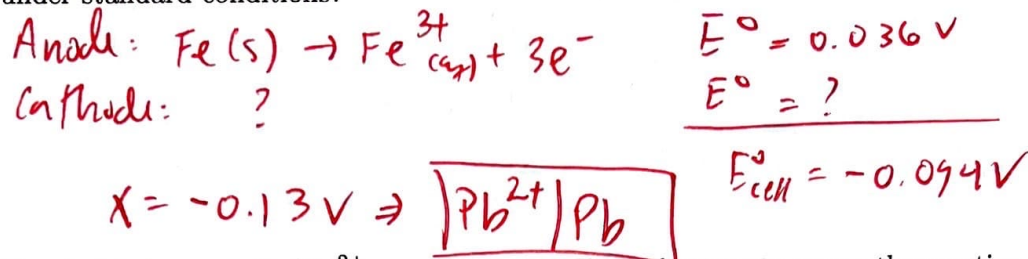 Anode: Fe(s) → Fe³⁺(aq) + 3e⁻ E° = 0.036 V
Cathode: ? E° = ?
E°cell = -0.094V
X = -0.13 V ⇒ |Pb²⁺|Pb